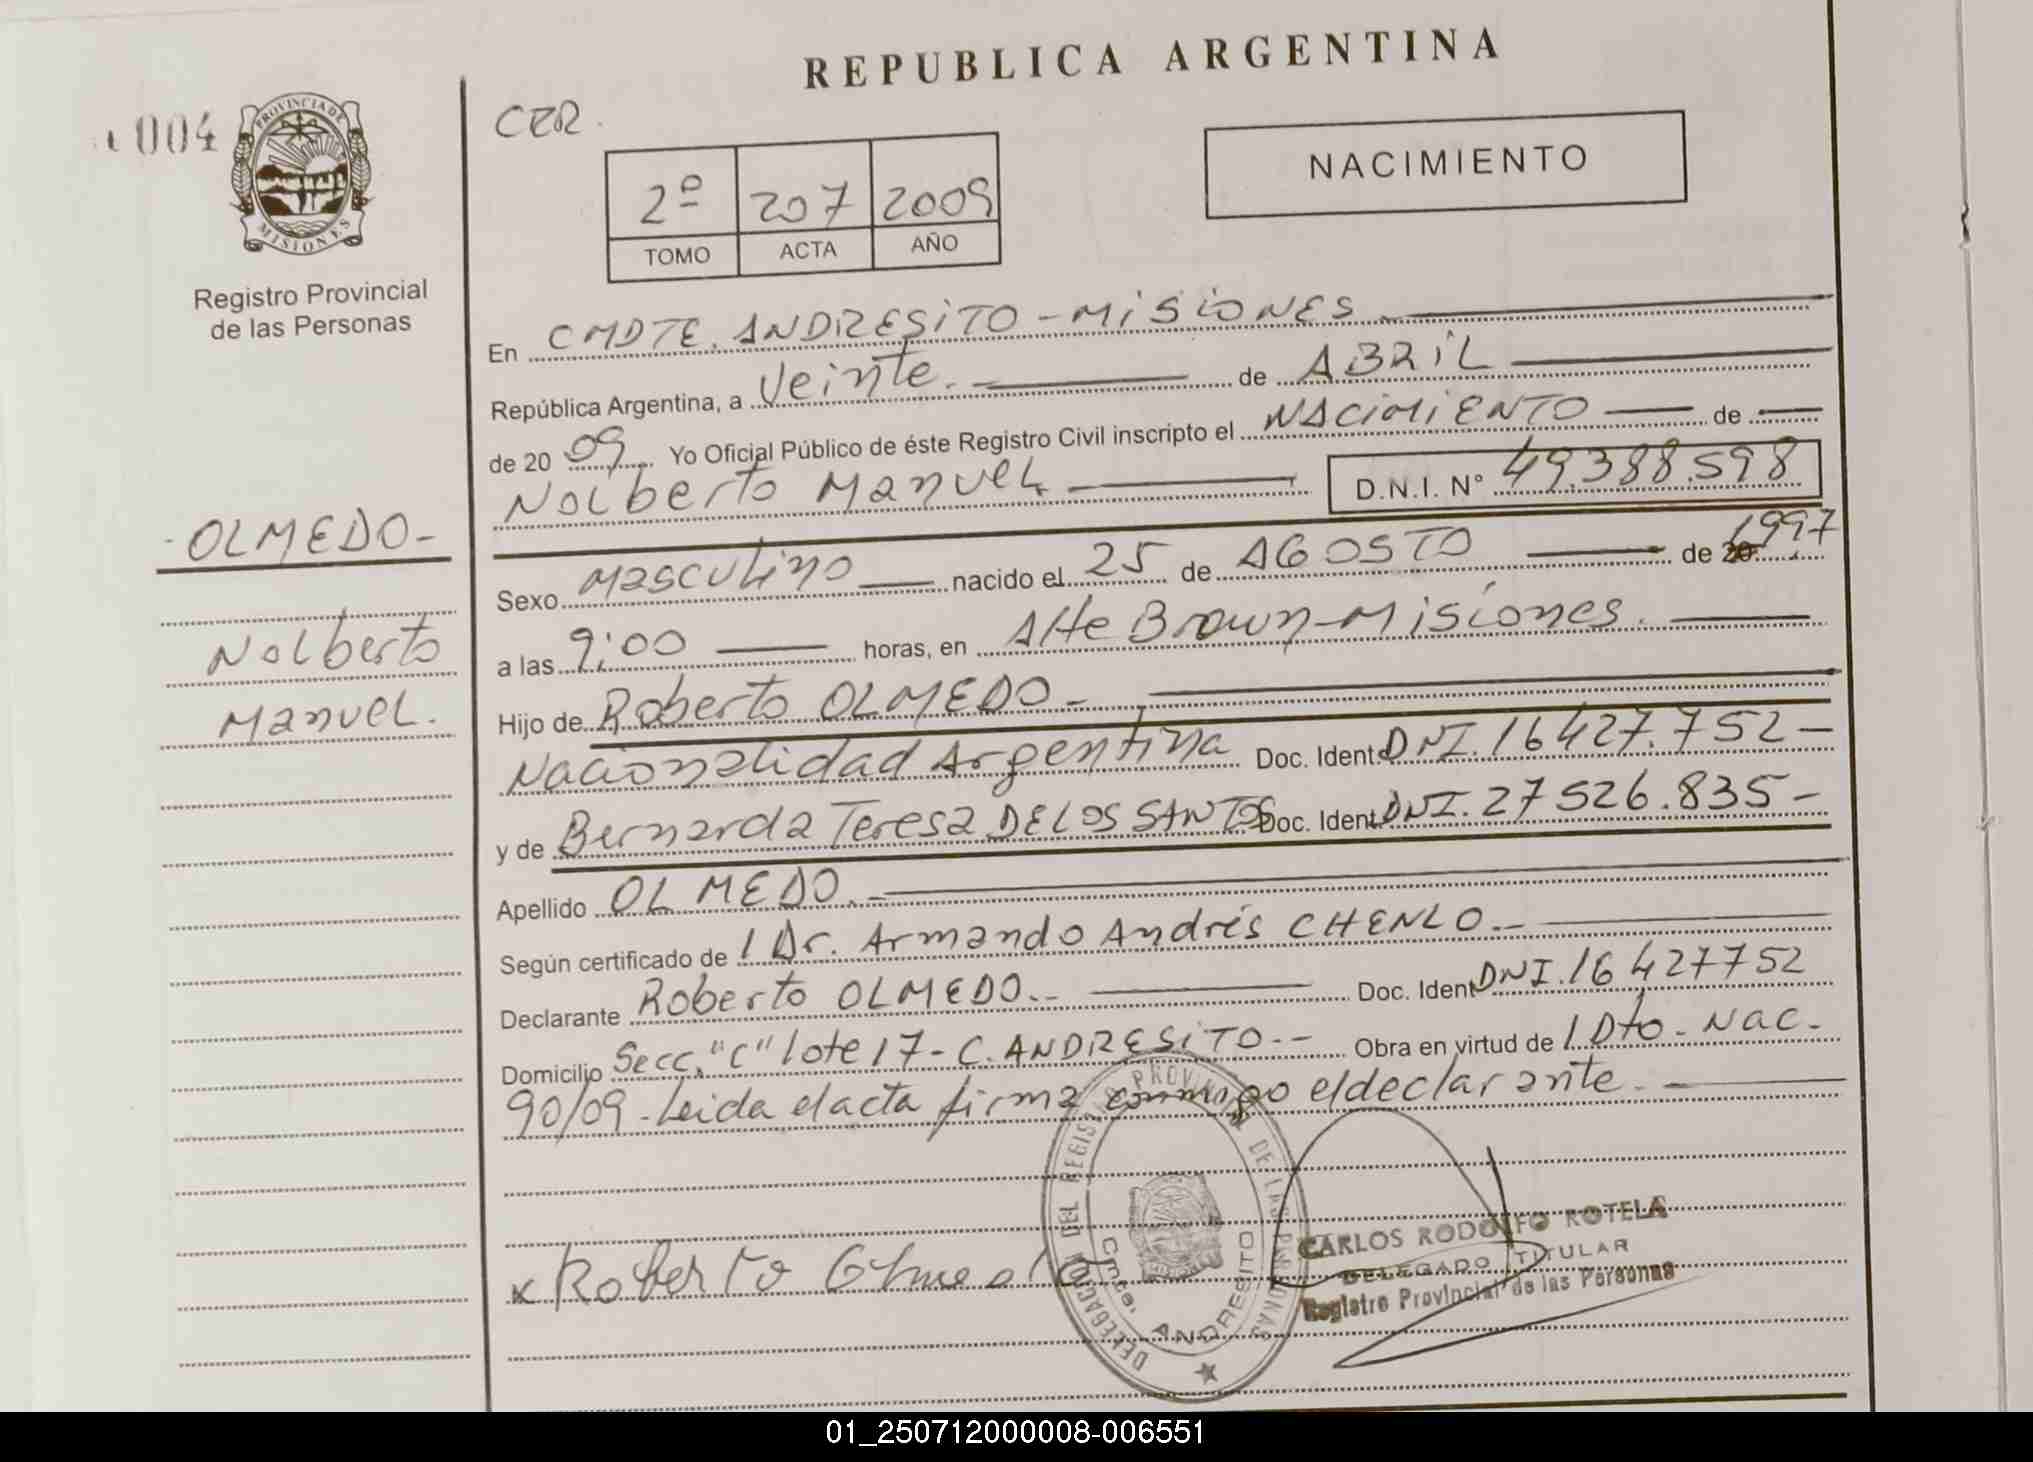 REPUBLICA ARGENTINA
004
PROVINCIA DE
MISIONES
Registro Provincial
de las Personas
CER.
2º 207 2009
TOMO ACTA AÑO
NACIMIENTO
En CMDTE. ANDRESITO - MISIONES
República Argentina, a Veinte. de ABRIL
de 20 09 Yo Oficial Público de éste Registro Civil inscripto el NACIMIENTO de
Nolberto Manuel D.N.I. N° 49.388.598
- OLMEDO -
Nolberto
Manuel.
Sexo masculino nacido el 25 de AGOSTO de 20 1997
a las 9:00 horas, en Alte Brown - Misiones.
Hijo de Roberto OLMEDO -
Nacionalidad Argentina Doc. Ident. DNI. 16427.752 -
y de Bernarda Teresa DE LOS SANTOS Doc. Ident. DNI. 27526.835 -
Apellido OLMEDO. -
Según certificado de 1 Dr. Armando Andrés CHENLO. -
Declarante Roberto OLMEDO. - Doc. Ident DNI. 16427752
Domicilio Secc. "C" lote 17 - C. ANDRESITO. - Obra en virtud de 1 Dto - Nac -
90/09 - Leida el acta firma conmigo el declarante.
x Roberto Olmedo
DELEGACION DEL REGISTRO PROVINCIAL DE LAS PERSONAS
Cmte. ANDRESITO
CARLOS RODOLFO ROTELA
DELEGADO TITULAR
Registro Provincial de las Personas
01_250712000008-006551